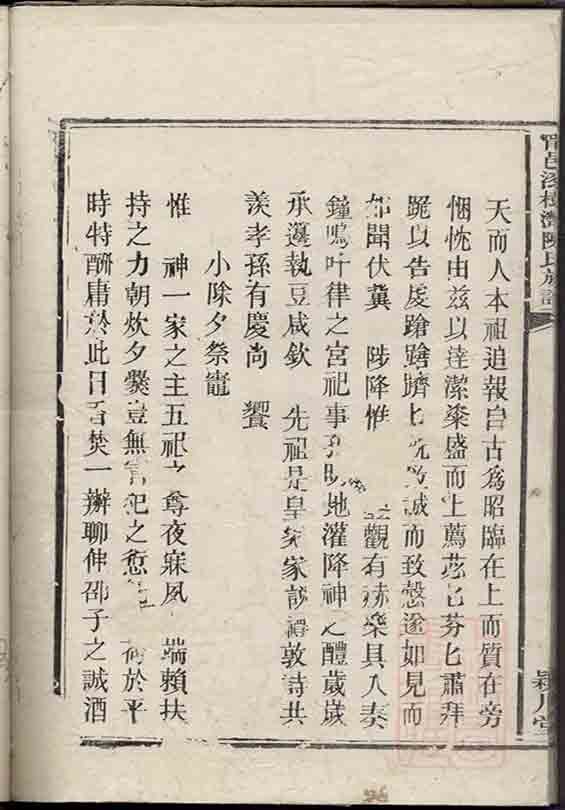 邑溪陳氏族譜
天而人本祖追報自古為昭臨在上而質在旁
悃忱由茲以達潔粢盛而上薦苾匕芬匕肅拜
跪以告虔蹌蹌擠匕致誠而致慤遂如見而
聞伏冀　陟降惟　觀有赫樂具入奏
鐘鳴叶律之宮祀事孔明灌降神之醴歲歲
承邊執豆咸欽　先祖是皇家家敦詩共
羨孝孫有慶尚　饗
小除夕祭竈
惟　神一家之主五祀之尊夜寐夙　端賴扶
持之力朝炊夕爨豈無冒犯之愆　荷於平
時特酬庸於此日香焚一瓣聊伸卲子之誠酒
潁川堂